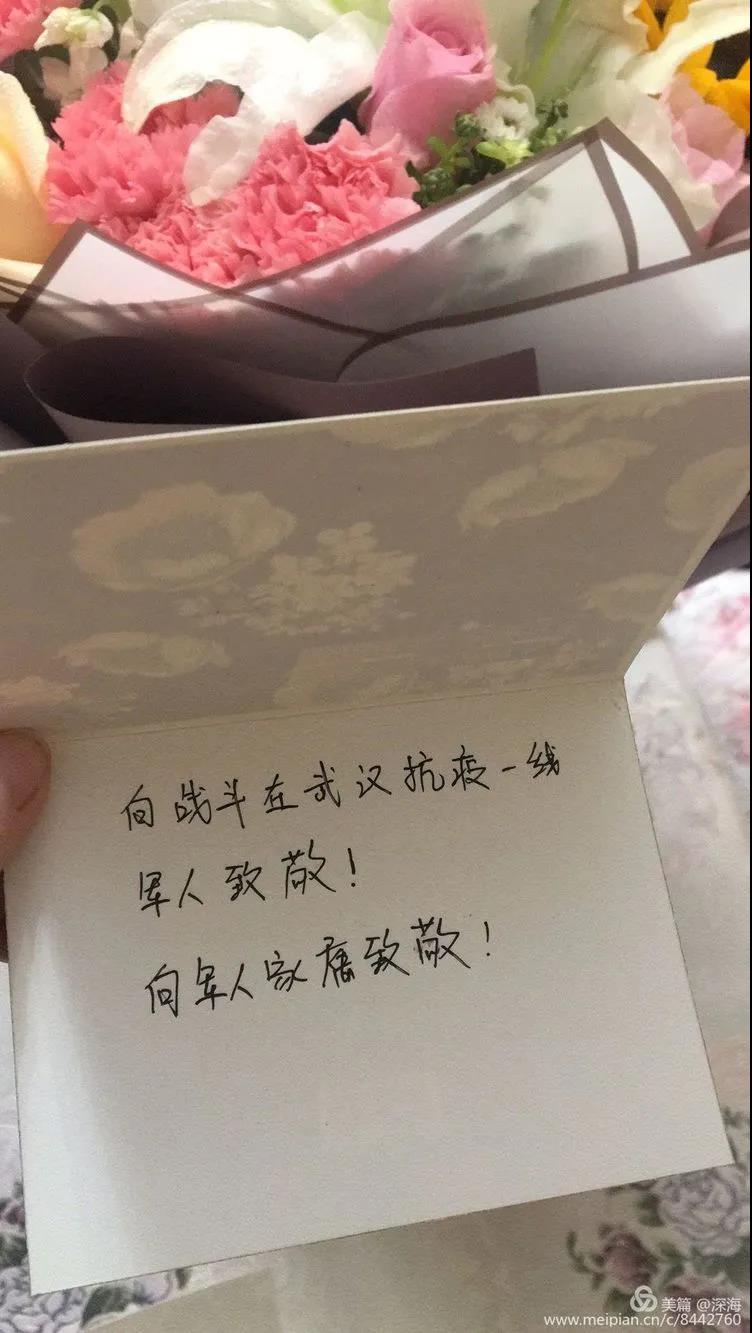 向战斗在武汉抗疫一线
军人致敬！
向军人家属致敬！
美篇 @深海
www.meipian.cn/c/8442760